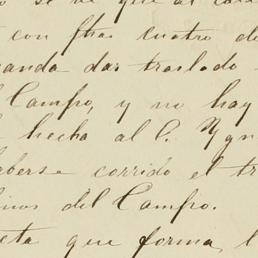 se ve que al
con fhas cuatro de
anda dar traslado
Campo, y no hay
hecha al P. Ygn
eberse corrido el tr
inos del Campo.
eta que forma, l